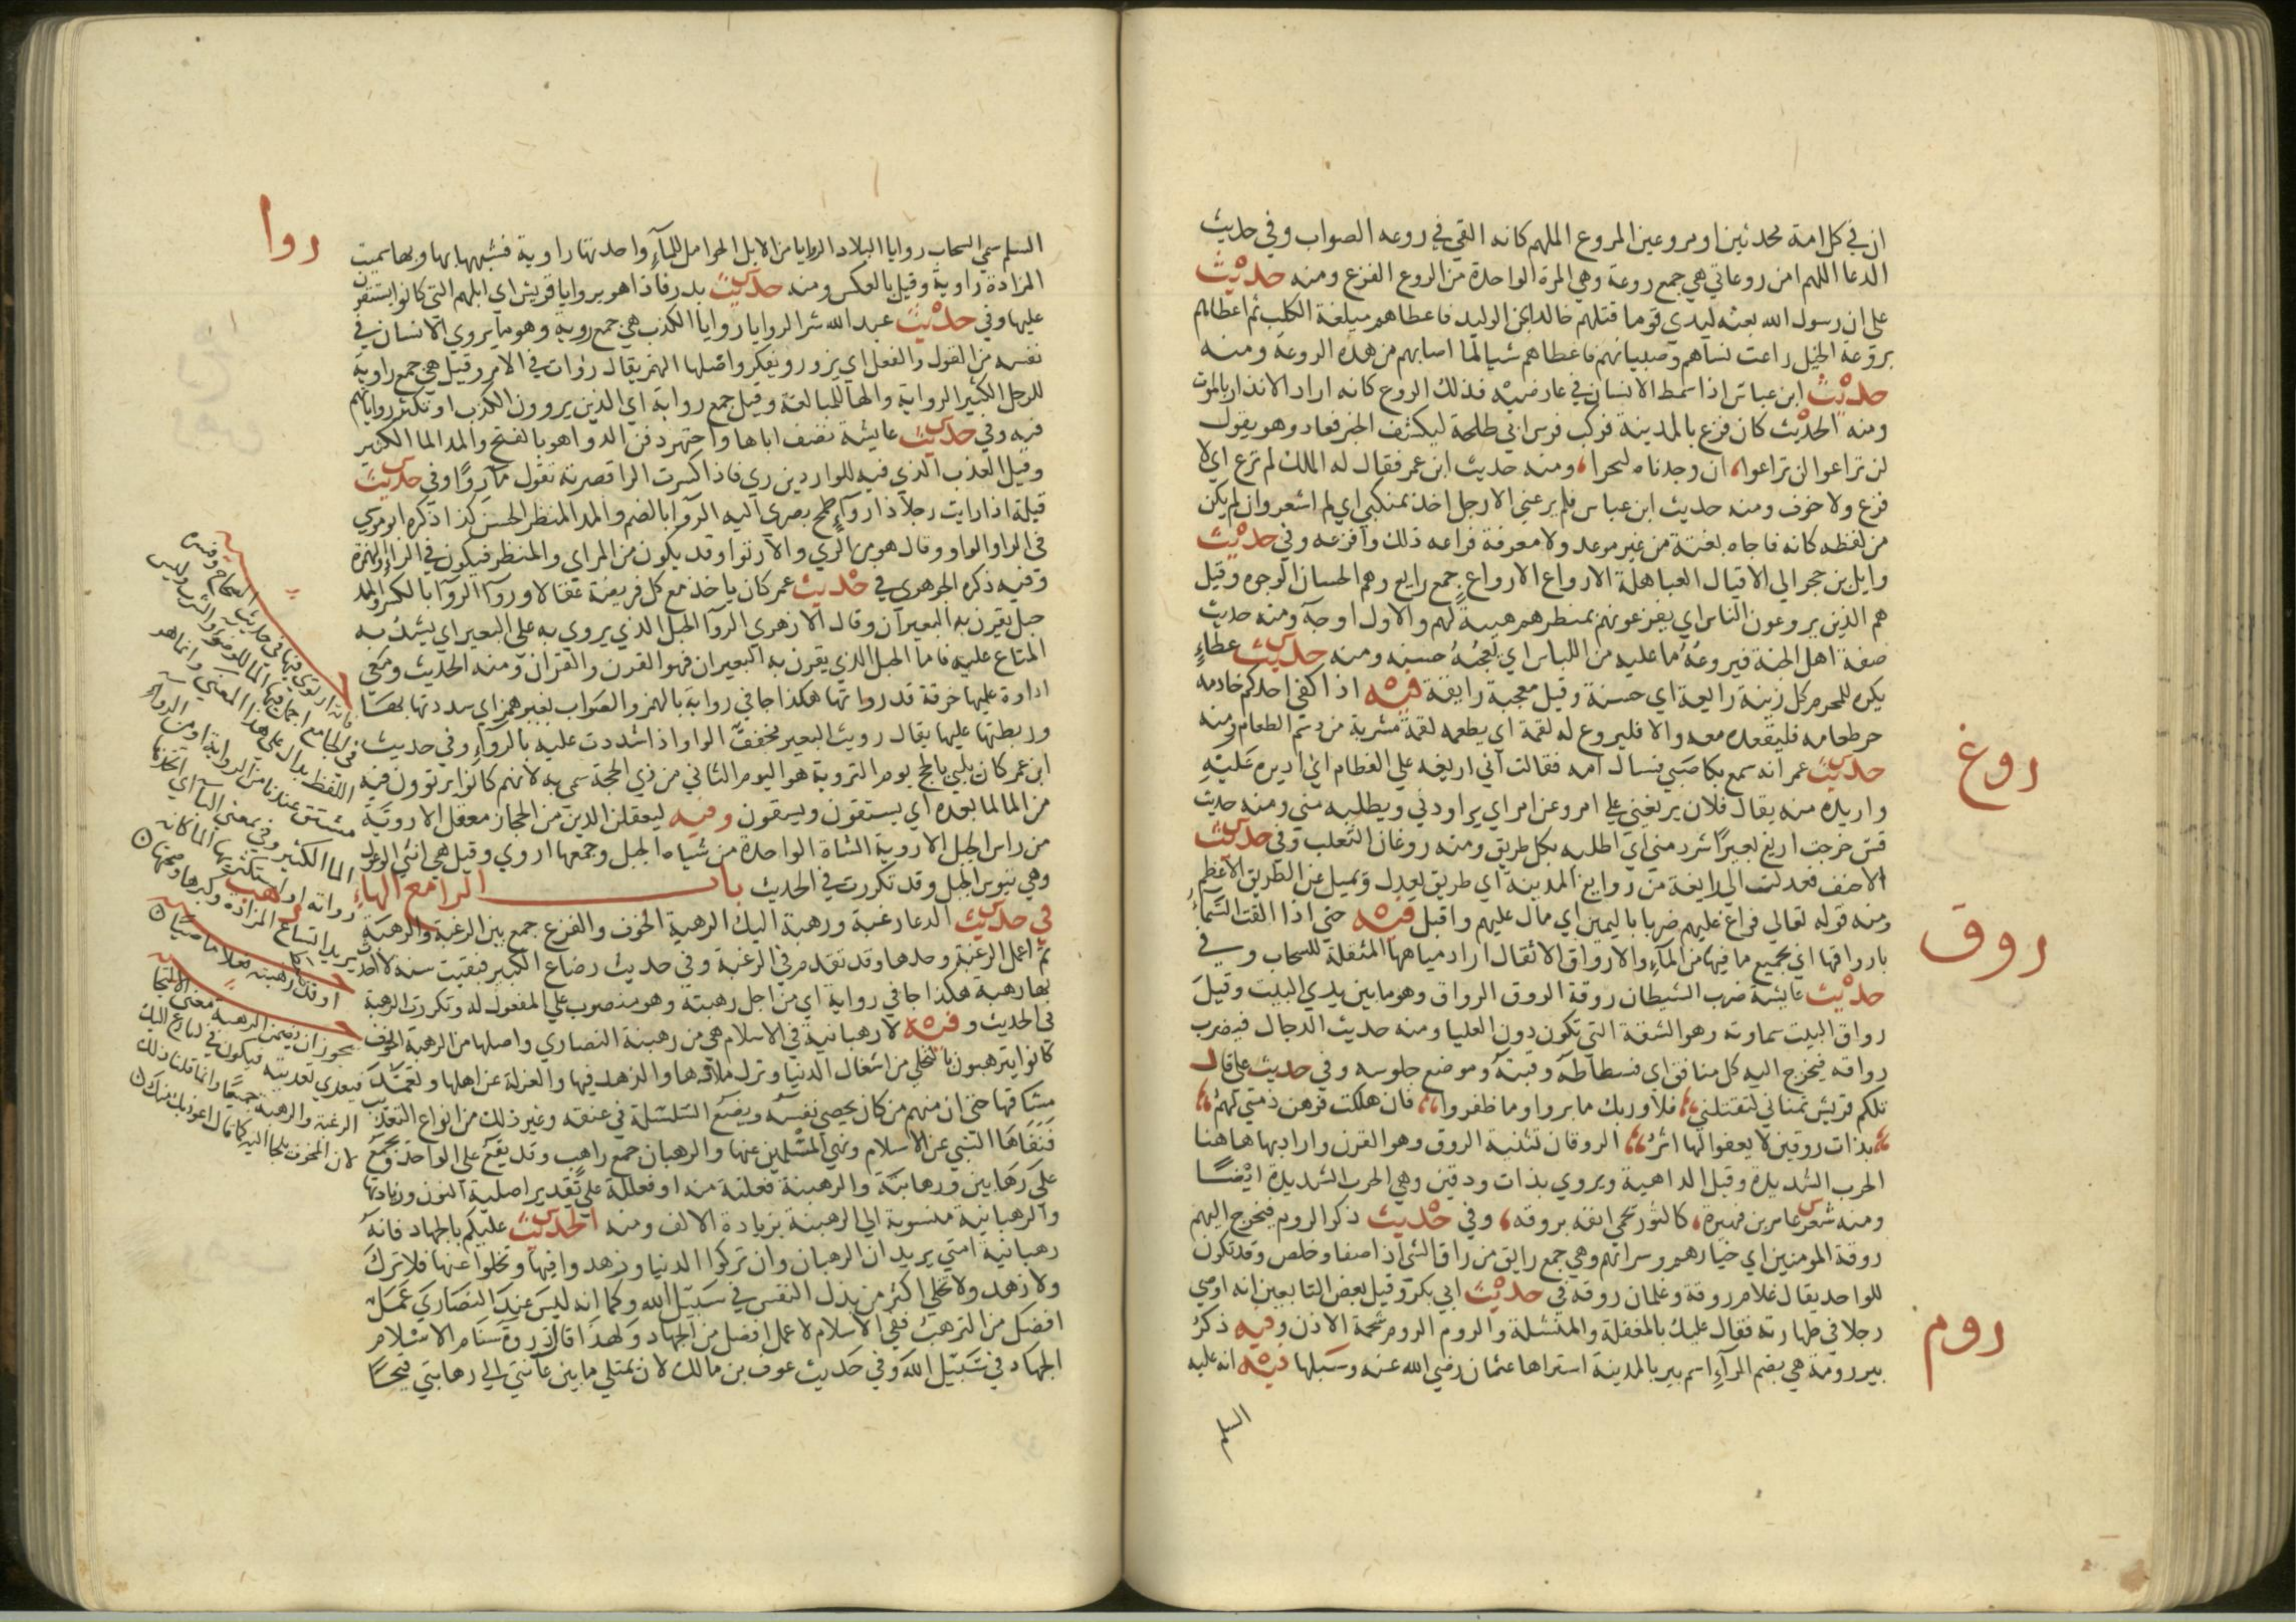 ان في كل امة محدثين او مروعين المروع الملهم كانه القي في روعه الصواب وفي حديث
الدعا اللهم امن روعاتي هي جمع روعة وهي المرة الواحدة من الروع الفزع ومنه حديث
علي ان رسول الله بعثه ليدي قوما قتلهم خالد ابن الوليد فاعطاهم ميلغة الكلب ثم اعطاهم
بروعة الخيل راعت نساهم وصبيانهم فاعطاهم شيا لما اصابهم من هذه الروعة ومنه
حديث ابن عباس اذا شمط الانسان في عارضيه فذلك الروع كانه اراد الانذار بالموت
ومنه الحديث كان فزع بالمدينة فركب فرس ابي طلحة ليكشف الخبر فعاد وهو يقول
لن تراعوا لن تراعوا ان وجدناه لبحرا ومنه حديث ابن عمر فقال له الملك لم ترع اي لا
فزع ولا خوف ومنه حديث ابن عباس فلم يرعني الا رجل اخذ بمنكبي اي لم اشعر وان لم يكن
من لفظه كانه فاجاه بغتة من غير موعد ولا معرفة فراعه ذلك وافزعه وفي حديث
وايل بن حجر الي الاقيال العباهلة الارواع الارواع جمع رايع وهم الحسان الوجوه وقيل
هم الذين يروعون الناس اي يفزعونهم بمنظرهم هيبة لهم والاول اوجه ومنه حديث
صفة اهل الجنة فيروعه ما عليه من اللباس اي يعجبه حسنه ومنه حديث عطاء
يكره للمحرم كل زينة رايعة اي حسنة وقيل معجبة رايقة فيه اذا كفي احدكم خادمه
روغ
حر طعامه فليقعده معه والا فليروغ له لقمة اي يطعمه لقمة مشربة من دسم الطعام ومنه
حديث عمر انه سمع بكا صبي فسال امه فقالت اني اريغه علي الفطام اي اديره عليه
واريده منه يقال فلان يريغني علي امر وعن امر اي يراودني ويطلبه مني ومنه حديث
قس خرجت اريغ بعيرا شرد مني اي اطلبه بكل طريق ومنه روغان الثعلب وفي حديث
الاحنف فعدلت الي رايغة من روايغ المدينة اي طريق يعدل ويميل عن الطريق الاعظم
ومنه قوله تعالي فراغ عليهم ضربا باليمين اي مال عليهم واقبل فيه حتي اذا القت السماء
روق
باروراقها اي بجميع ما فيها من الماء والارواق الاثقال اراد مياهها المثقلة للسحاب وفي
حديث عايشة ضرب الشيطان روقه الروق الرواق وهو ما بين يدي البيت وقيل
رواق البيت سماوته وهو الشقة التي تكون دون العليا ومنه حديث الدجال فيضرب
رواقه فيخرج اليه كل منافق اي فسطاطه وقبته وموضع جلوسه وفي حديث علي قال
تلكم قريش تمناني لتقتلني فلا وربك ما بروا وما ظفروا فان هلكت فرهن ذمتي لهم
بذات روقين لا يعفو لها اثر الروقان تثنية الروق وهو القرن واراد بها هاهنا
الحرب الشديدة وقيل الداهية ويروي بذات ودقين وهي الحرب الشديدة ايضا
ومنه شعر عامر بن فهيرة كالثور يحمي انفه بروقه وفي حديث ذكر الروم فيخرج اليهم
روقة المومنين اي خيارهم وسراتهم وهي جمع رايق من راق الشي اذا صفا وخلص وقد تكون
للواحد يقال غلام روقة وغلمان روقة في حديث ابي بكر وقيل بعض التابعين انه اوصي
روم
رجلا في طهارته فقال عليك بالمغفلة والمنشلة والروم الروم شحمة الاذن وفيه ذكر
بير رومة هي بضم الراء اسم بير بالمدينة اشتراها عثمان رضي الله عنه وسبلها فيه انه عليه
السلم
روا
السلم سمي السحاب روايا البلاد الروايا من الابل الحوامل للماء واحدتها راوية فشبهها بها وبها سميت
المزادة راوية وقيل بالعكس ومنه حديث بدر فاذا هو بروايا قريش اي ابلهم التي كانوا يستقون
عليها وفي حديث عبد الله شر الروايا روايا الكذب هي جمع روية وهو ما يروي الانسان في
نفسه من القول والفعل اي يزور ويفكر واصلها الهمز يقال روات في الامر وقيل هي جمع راوية
للرجل الكثير الرواية والها للمبالغة وقيل جمع رواية اي الذين يروون الكذب او تكثر رواياتهم
فيه وفي حديث عايشة تصف اباها واجتهر دفن الرواهو بالفتح والمد الما الكثير
وقيل العذب الذي فيه للواردين ري فاذا كسرت الرا قصرته تقول ما روا وفي حديث
قيلة اذا رايت رجلا ذا رواء طمح بصري اليه الروا بالضم والمد المنظر الحسن كذا ذكره ابو موسي
في الرا والواو وقال هو من الري والارتوا وقد يكون من المراي والمنظر فيكون في الرا والهمزة
وفيه ذكره الجوهري في حديث عمر كان ياخذ مع كل فريضة عقالا وروا الروا بالكسر والمد
حبل يقرن به البعيران وقال الازهري الروا الحبل الذي يروي به علي البعير اي يشد به
المتاع عليه فاما الحبل الذي يقرن به البعيران فهو القرن والقران ومنه الحديث ومعي
اداوة عليها خرقة قد رواتها هكذا جا في رواية بالهمز والصواب بغير همز اي شددتها بها
وربطتها عليها يقال رويت البعير مخفف الواو اذا شددت عليه بالرواء وفي حديث
ابن عمر كان يلبي بالحج يوم التروية هو اليوم الثاني من ذي الحجة سمي به لانهم كانوا يرتوون فيه
من الما لما بعده اي يستقون ويسقون وفيه ليعقلن الدين من الحجاز معقل الاروية
من راس الجبل الاروية الشاة الواحدة من شياه الجبل وجمعها اروي وقيل هي انثي الوعول
وهي تيوس الجبل وقد تكررت في الحديث باب الرا مع الهاء
رهب
في حديث الدعا رغبة ورهبة اليك الرهبة الخوف والفزع جمع بين الرغبة والرهبة
ثم اعمل الرغبة وحدها وقد تقدم في الرغبة وفي حديث رضاع الكبير فبقيت سنة لا احدث
بها رهبة هكذا جا في رواية اي من اجل رهبته وهو منصوب علي المفعول له وتكررت الرهبة
في الحديث وفيه لا رهبانية في الاسلام هي من رهبنة النصاري واصلها من الرهبة الخوف
كانوا يترهبون بالتخلي من اشغال الدنيا وترك ملاذها والزهد فيها والعزلة عن اهلها وتعمد
مشاقها حتي ان منهم من كان يخصي نفسه ويضع السلسلة في عنقه وغير ذلك من انواع التعذيب
فنفاها النبي عن الاسلام ونهي المسلمين عنها والرهبان جمع راهب وقد يقع علي الواحد ويجمع
علي رهابين ورهابنة والرهبنة فعلنة منه او فعللة علي تقدير اصلية النون وزيادتها
والرهبانية منسوبة الي الرهبنة بزيادة الالف ومنه الحديث عليكم بالجهاد فانه
رهبانية امتي يريد ان الرهبان وان تركوا الدنيا وزهدوا فيها وتخلوا عنها فلا ترك
ولا زهد ولا تخلي اكثر من بذل النفس في سبيل الله وكما انه ليس عند النصاري عمل
افضل من الترهب ففي الاسلام لا عمل افضل من الجهاد ولهذا قال ذروة سنام الاسلام
الجهاد في سبيل الله وفي حديث عوف بن مالك لان يمتلي ما بين عانتي الي رهابتي قيحا